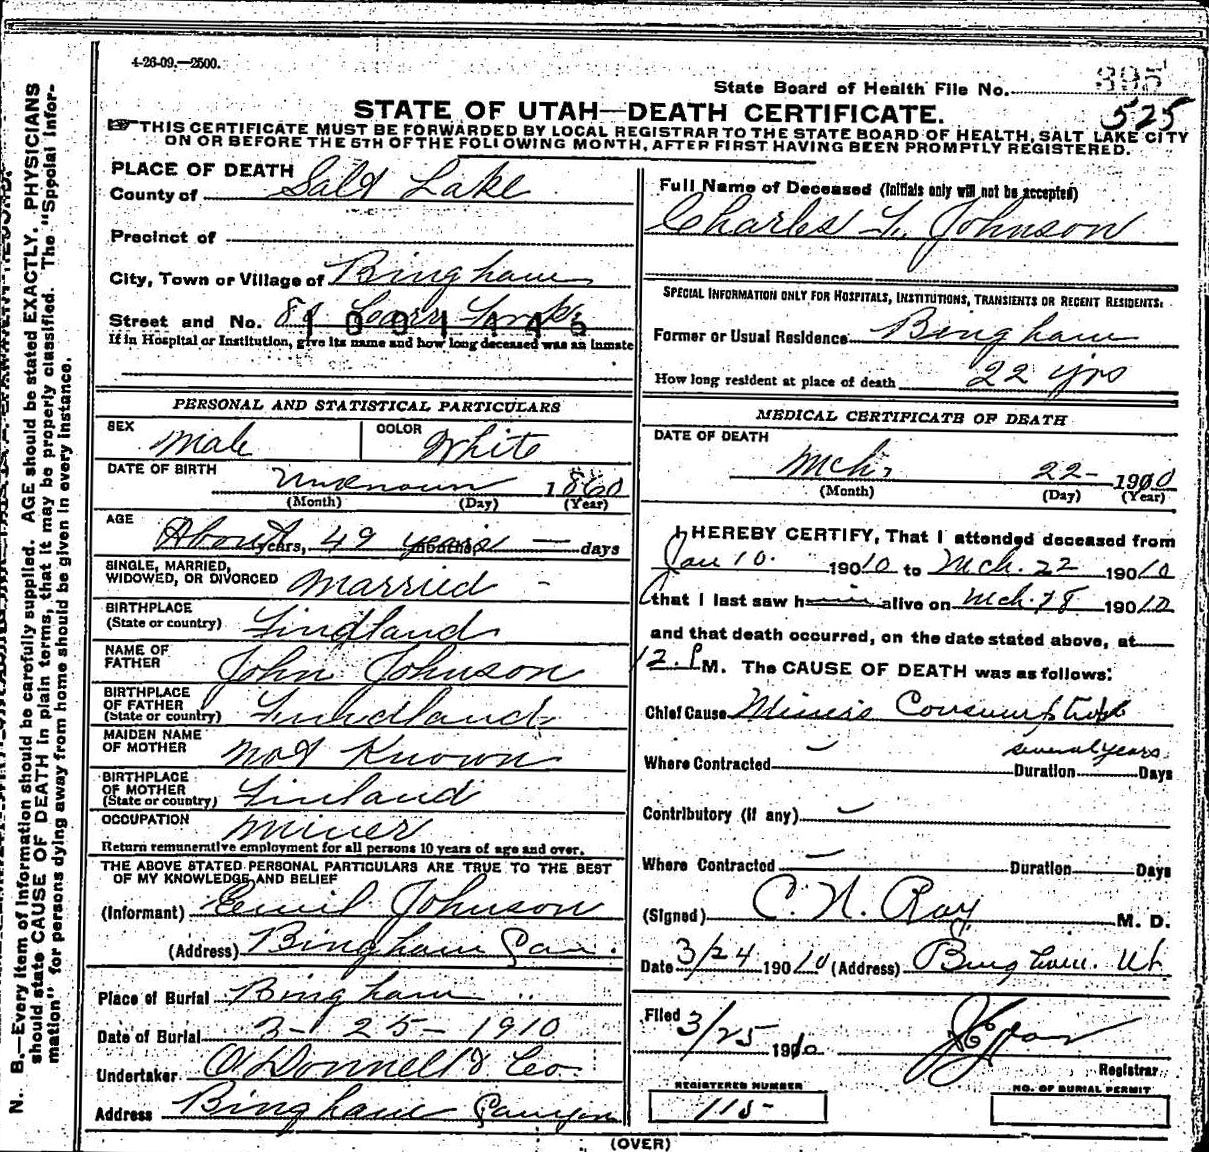 4-26-09.—2500.
State Board of Health File No. 395
525
STATE OF UTAH—DEATH CERTIFICATE.
THIS CERTIFICATE MUST BE FORWARDED BY LOCAL REGISTRAR TO THE STATE BOARD OF HEALTH, SALT LAKE CITY
ON OR BEFORE THE 5TH OF THE FOLLOWING MONTH, AFTER FIRST HAVING BEEN PROMPTLY REGISTERED.
PLACE OF DEATH
County of Salt Lake
Precinct of
City, Town or Village of Bingham
Street and No. 81 Carr Fork
1001145
If in Hospital or Institution, give its name and how long deceased was an inmate
PERSONAL AND STATISTICAL PARTICULARS
SEX Male COLOR White
DATE OF BIRTH Unknown 1860
(Month) (Day) (Year)
AGE About 49 years — days
years, months,
SINGLE, MARRIED,
WIDOWED, OR DIVORCED Married -
BIRTHPLACE
(State or country) Findland
NAME OF
FATHER John Johnson
BIRTHPLACE
OF FATHER
(State or country) Finhdland
MAIDEN NAME
OF MOTHER Not Known
BIRTHPLACE
OF MOTHER
(State or country) Finland
OCCUPATION Miner
Return remunerative employment for all persons 10 years of age and over.
THE ABOVE STATED PERSONAL PARTICULARS ARE TRUE TO THE BEST
OF MY KNOWLEDGE AND BELIEF
(Informant) Emil Johnson
(Address) Bingham Can.
Place of Burial Bingham "
Date of Burial 3-25-1910
Undertaker O'Donnell & Co.
Address Bingham Canyon
Full Name of Deceased (Initials only will not be accepted)
Charles L. Johnson
SPECIAL INFORMATION ONLY FOR HOSPITALS, INSTITUTIONS, TRANSIENTS OR RECENT RESIDENTS:
Former or Usual Residence Bingham
How long resident at place of death 22 yrs
MEDICAL CERTIFICATE OF DEATH
DATE OF DEATH
Mch. 22- 1910
(Month) (Day) (Year)
I HEREBY CERTIFY, That I attended deceased from
Jan 10. 190 10 to Mch. 22 190 10
that I last saw him alive on Mch. 18 190 10
and that death occurred, on the date stated above, at
12. P M. The CAUSE OF DEATH was as follows:
Chief Cause Miners Consumption
several years
Where Contracted Duration Days
Contributory (if any)
Where Contracted Duration Days
(Signed) C. N. Ray M. D.
Date 3/24 190 10 (Address) Bingham. Ut
Filed 3/25 1910
Registrar
REGISTERED NUMBER
115-
NO. OF BURIAL PERMIT
(OVER)
N. B.—Every item of information should be carefully supplied. AGE should be stated EXACTLY. PHYSICIANS
should state CAUSE OF DEATH in plain terms, that it may be properly classified. The "Special Infor-
mation" for persons dying away from home should be given in every instance.